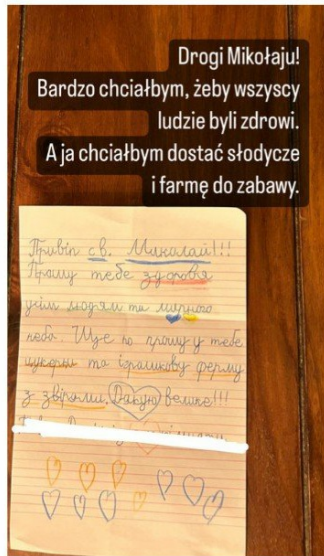 Drogi Mikołaju!
Bardzo chciałbym, żeby wszyscy
ludzie byli zdrowi.
A ja chciałbym dostać słodycze
i farmę do zabawy.
Привіт св. Миколай!!!
Прошу тебе здоров'я
усім людям та мирного
неба. Ще я прошу у тебе
цукерки та іграшкову ферму
з звірями. Дякую велике!!!